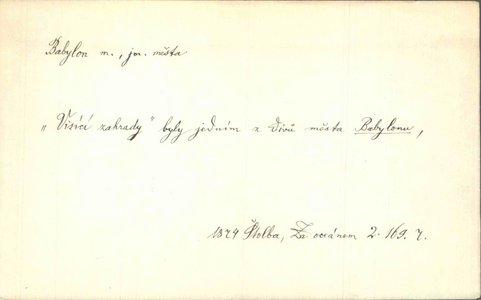 Babylon m., jm. města
„Visící zahrady" byly jedním z divů města Babylonu,
1874 Štolba, Za oceánem 2. 169. 7.